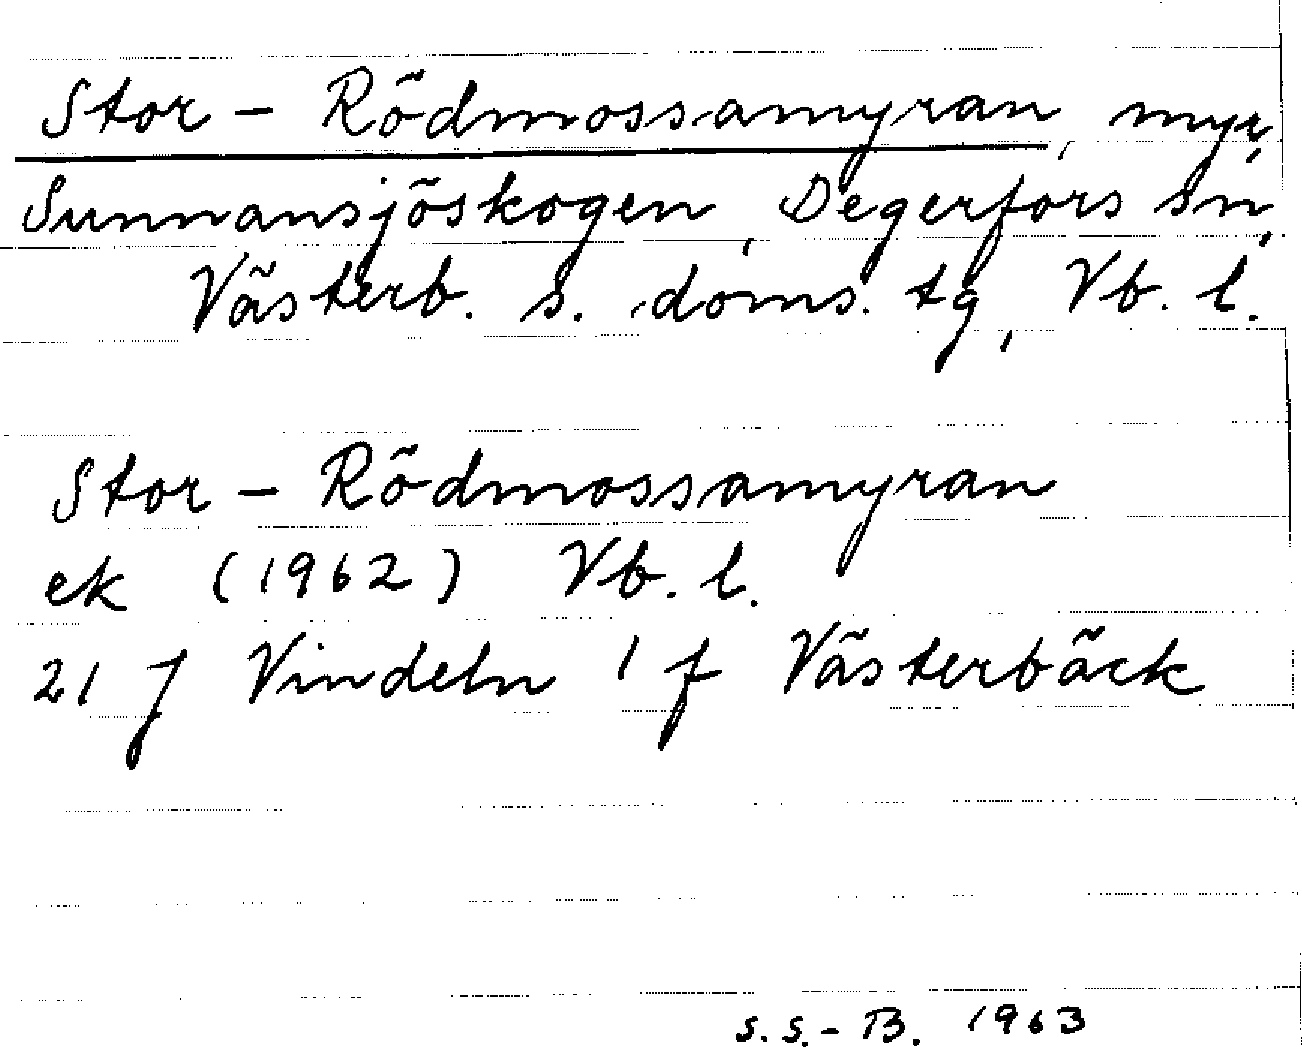 Stor - Rödmossamyran, myr,
Sunnansjöskogen, Degerfors sn,
Västerb. s. doms. tg, Vb. l.
Stor - Rödmossamyran
ek (1962) Vb. l.
21 J Vindeln 1 f Västerbäck
S.S.-B. 1963